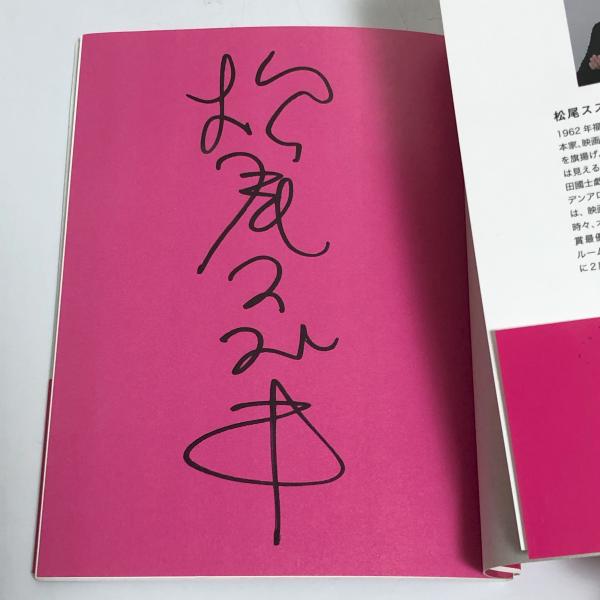 松尾スズキ
松尾スズ
1962年福
本家、映画
を旗揚げ。
は見える
田國士戯
デンアロ
は、映画
時々、オ
賞最優
ルーム
に2